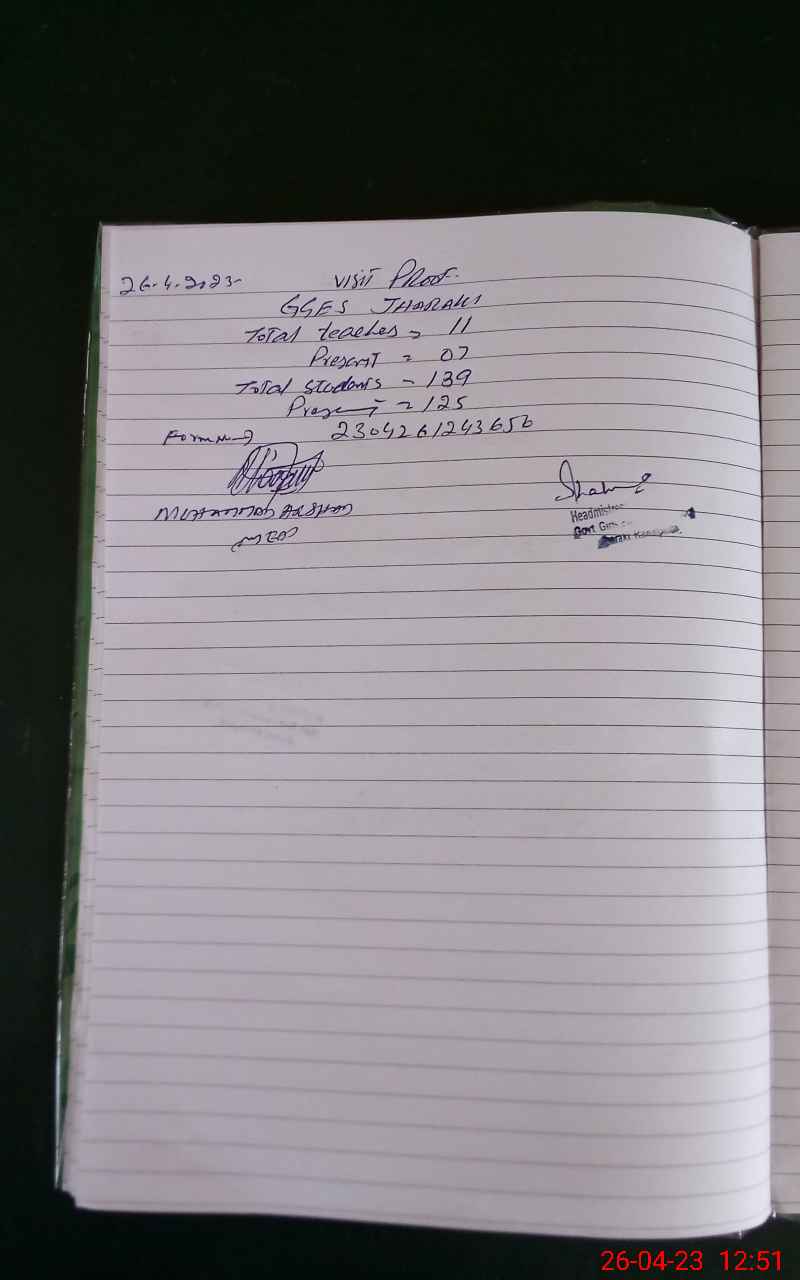 26.4.2023 VISIT PROOF.
GGES JHARAKI
Total teaches = 11
Present = 07
Total students = 139
Present = 125
Form No 2304261243656
MUHAMMAD ARSHAD
MEO
Headmistress
Govt Girls
26-04-23 12:51